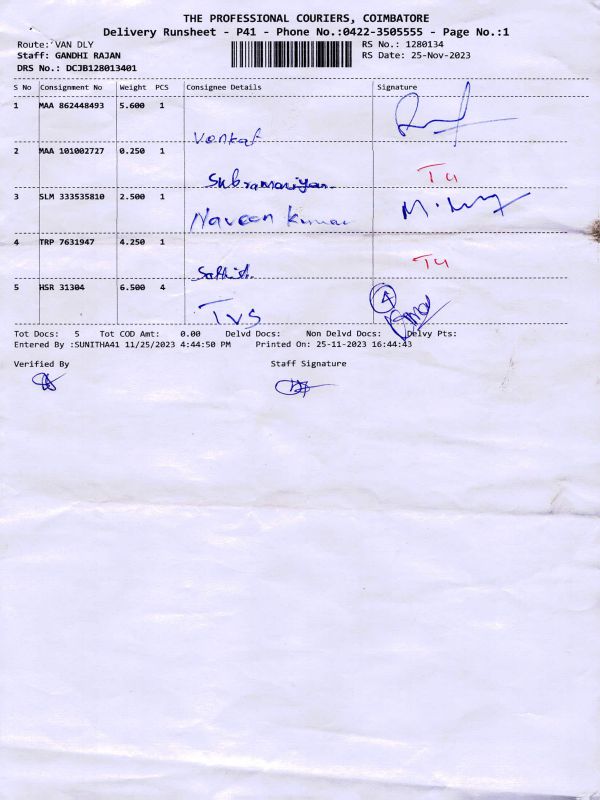 THE PROFESSIONAL COURIERS, COIMBATORE
Delivery Runsheet - P41 - Phone No.:0422-3505555 - Page No.:1
Route: VAN DLY RS No.: 1280134
Staff: GANDHI RAJAN RS Date: 25-Nov-2023
DRS No.: DCJB128013401
S No Consignment No Weight PCS Consignee Details Signature
1 MAA 862448493 5.600 1
Venkat
2 MAA 101002727 0.250 1
Subramaniyan T4
3 SLM 333535810 2.500 1
Naveen Kumar
4 TRP 7631947 4.250 1
Sathish T4
5 HSR 31304 6.500 4 4
TVS
Tot Docs: 5 Tot COD Amt: 0.00 Delvd Docs: Non Delvd Docs: Delvy Pts:
Entered By :SUNITHA41 11/25/2023 4:44:50 PM Printed On: 25-11-2023 16:44:43
Verified By Staff Signature